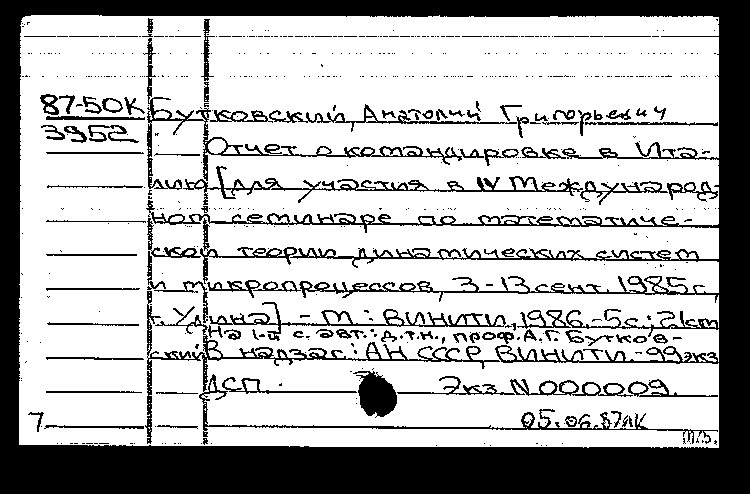 87-50К Бутковский, Анатолий Григорьевич
3952
Отчет о командировке в Ита-
лию [для участия в IV Международ-
ном семинаре по математиче-
ской теории динамических систем
и микропроцессов, 3-13 сент. 1985 г.,
г. Удина]. - М.: ВИНИТИ, 1986. - 5 с.; 21 см
На 1-й с. авт.: д.т.н., проф. А.Г. Бутков-
ский В надзаг.: АН СССР, ВИНИТИ. - 99 экз
ДСП. Экз. N 000009.
7 05.06.87 ЛК